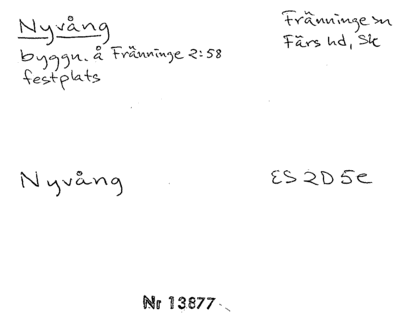 Nyvång
byggn. å Fränninge 2:58
festplats
Fränninge sn
Färs hd, Sk
Nyvång
ES 2D 5e
Nr 13877